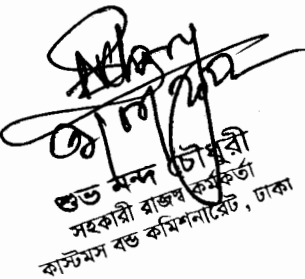 শুভ মন্দ চৌধুরী
সহকারী রাজস্ব কর্মকর্তা
কাস্টমস বন্ড কমিশনারেট, ঢাকা